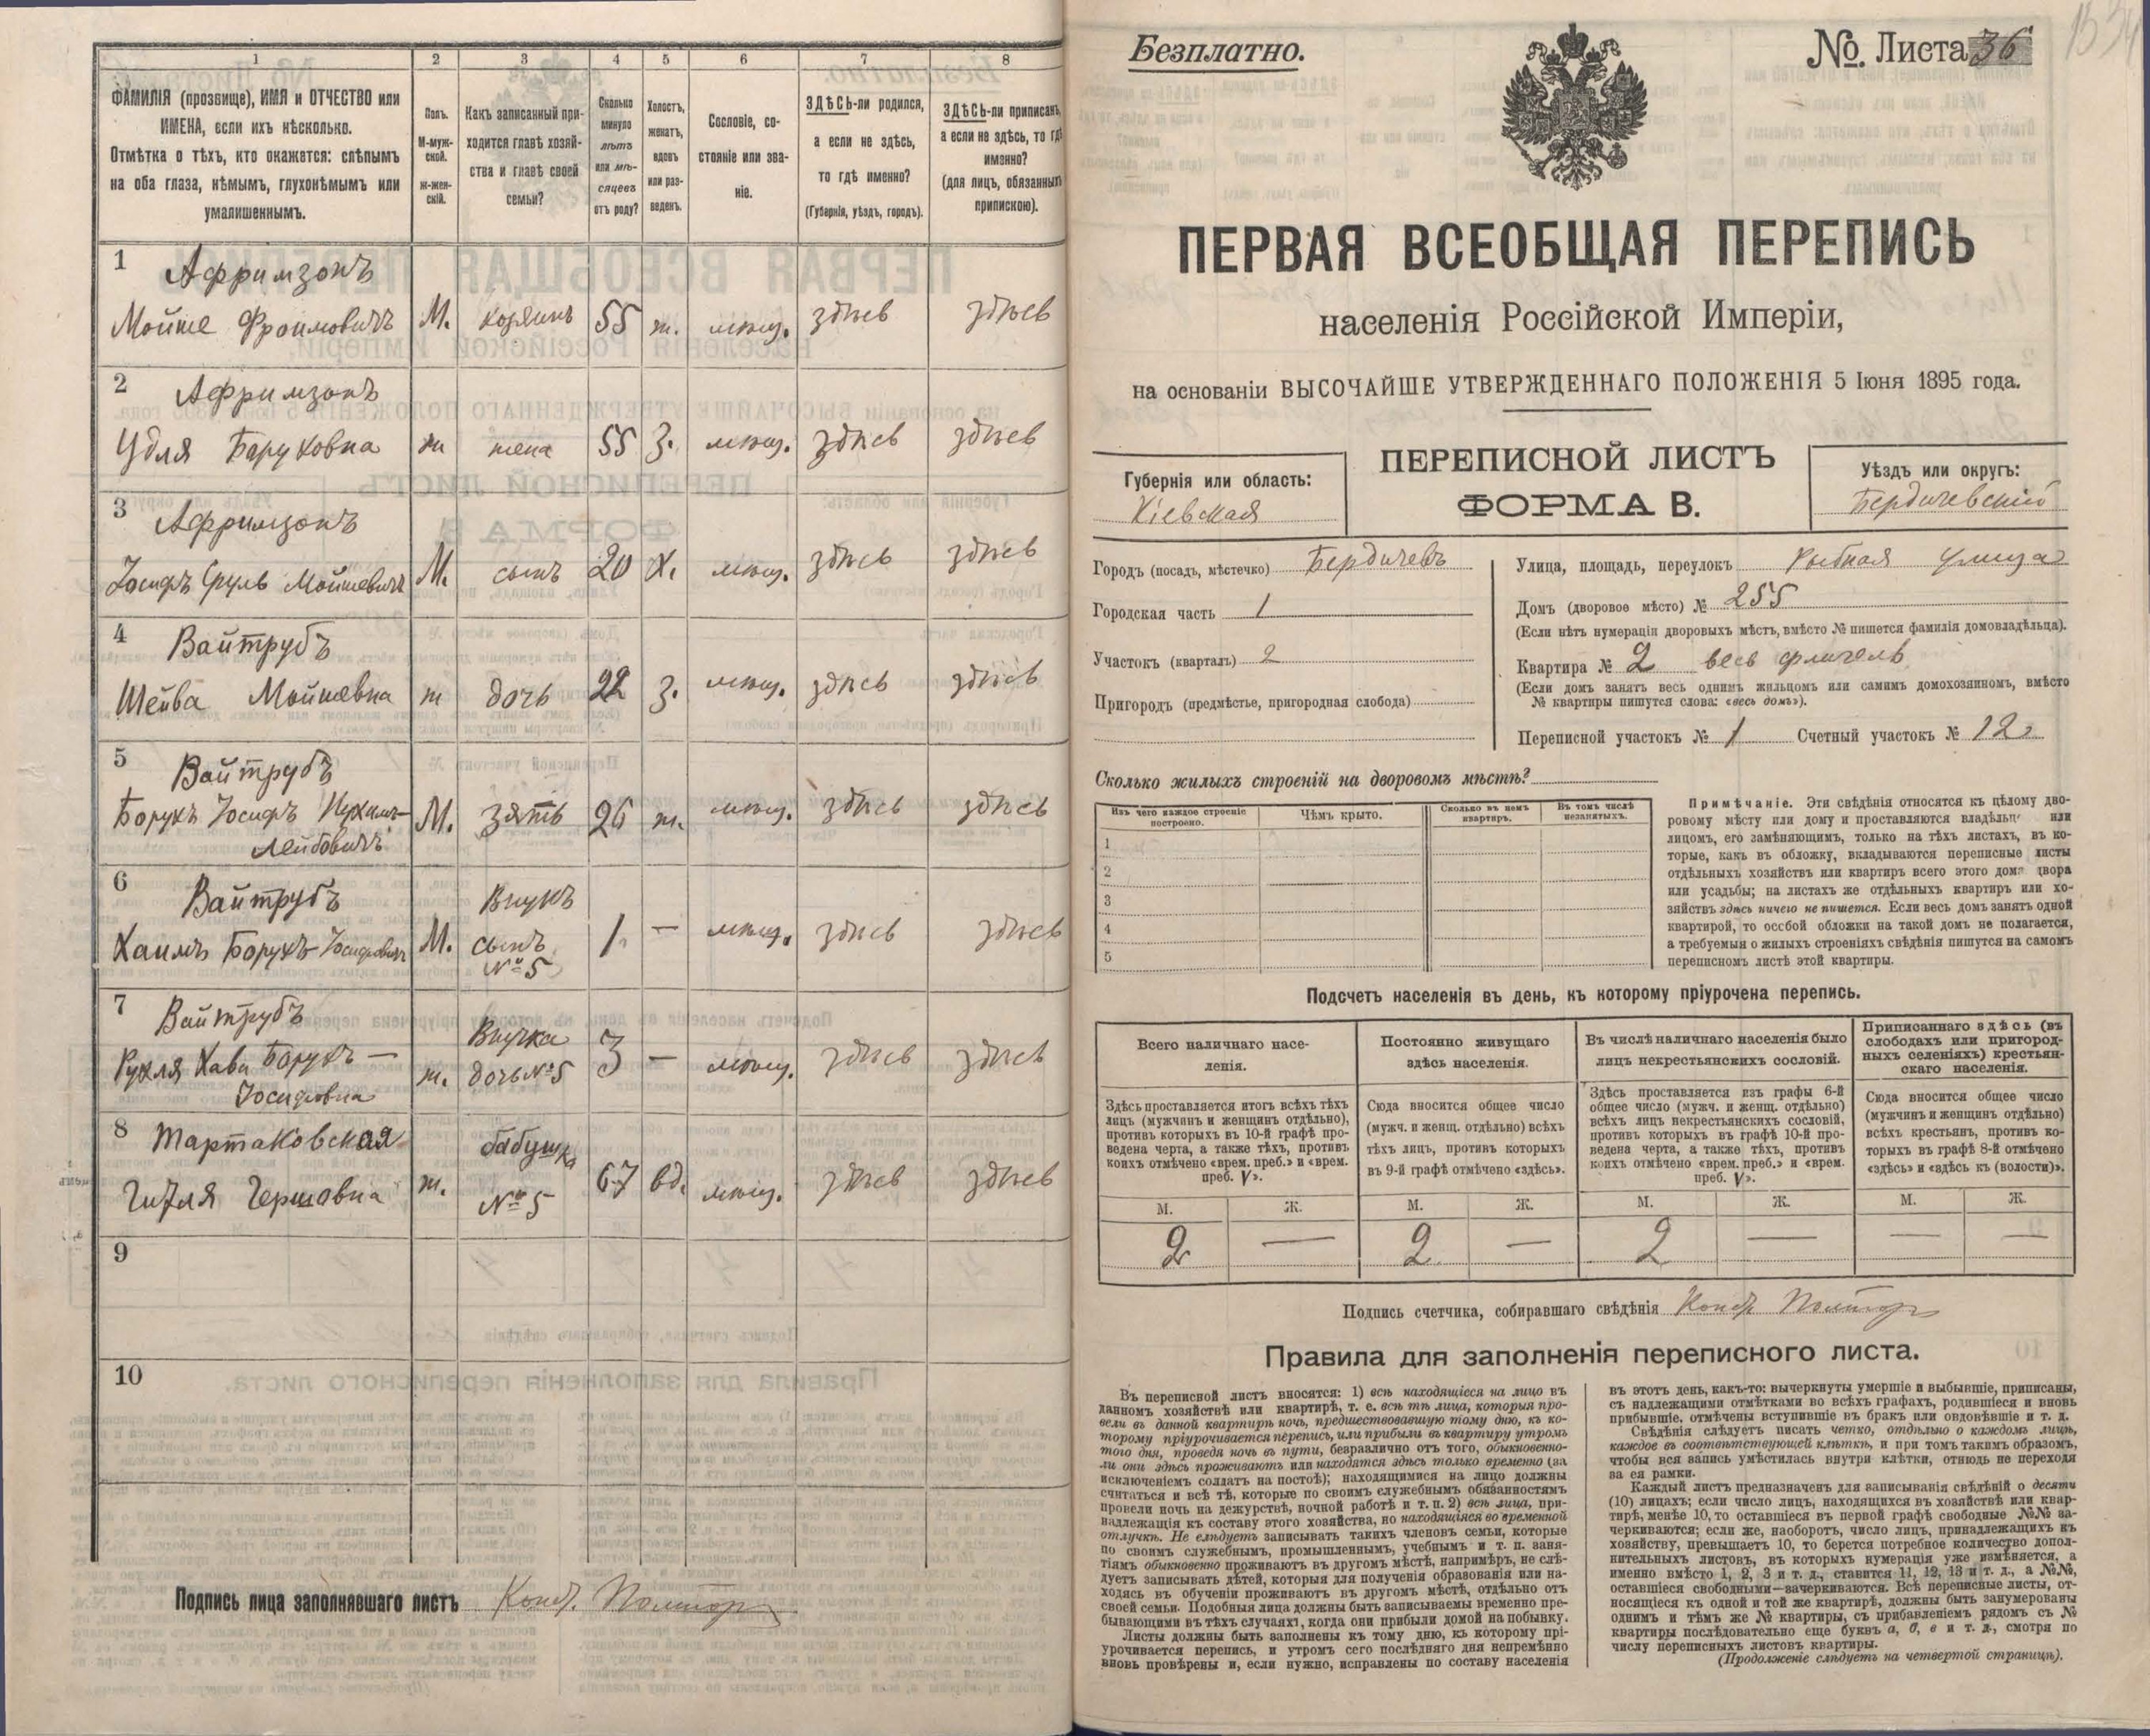 1 2 3 4 5 6 7 8
ФАМИЛІЯ (прозвище), ИМЯ и ОТЧЕСТВО или
ИМЕНА, если ихъ нѣсколько.
Отмѣтка о тѣхъ, кто окажется: слѣпымъ
на оба глаза, нѣмымъ, глухонѣмымъ или
умалишеннымъ.
Полъ.
М-муж-
ской.
ж-жен-
скій.
Какъ записанный при-
ходится главѣ хозяй-
ства и главѣ своей
семьи?
Сколько
минуло
лѣтъ
или мѣ-
сяцевъ
отъ роду?
Холостъ,
женатъ,
вдовъ
или раз-
веденъ.
Сословіе, со-
стояніе или зва-
ніе.
ЗДѢСЬ-ли родился,
а если не здѣсь,
то гдѣ именно?
(Губернія, уѣздъ, городъ).
ЗДѢСЬ-ли приписанъ,
а если не здѣсь, то гдѣ
именно?
(для лицъ, обязанныхъ
припискою).
1 Афримзонъ
Мойше Фроимовичъ М. хозяинъ 55 ж. мѣщ. здѣсь здѣсь
2 Афримзонъ
Удля Баруховна ж жена 55 З. мѣщ. здѣсь здѣсь
3 Афримзонъ
Іосифъ Сруль Мойшевичъ М. сынъ 20 х. мѣщ. здѣсь здѣсь
4 Вайтрубъ
Шейва Мойшевна ж дочь 22 З. мѣщ. здѣсь здѣсь
5 Вайтрубъ
Борухъ Іосифъ М. зять 26 ж. мѣщ. здѣсь здѣсь
Лейбовичъ
6 Вайтрубъ Внукъ
Хаимъ Борухъ-Іосифовичъ М. сынъ 1 — мѣщ. здѣсь здѣсь
№ 5
7 Вайтрубъ Внучка
Рухля Хава Борухъ— ж. дочь № 5 3 — мѣщ. здѣсь здѣсь
Іосифовна
8 Тартаковская бабушка
Гитля Гершовна ж. № 5 67 вд. мѣщ. здѣсь здѣсь
9
10
Подпись лица заполнявшаго листъ
Безплатно.
№. Листа 36
ПЕРВАЯ ВСЕОБЩАЯ ПЕРЕПИСЬ
населенія Россійской Имперіи,
на основаніи ВЫСОЧАЙШЕ УТВЕРЖДЕННАГО ПОЛОЖЕНІЯ 5 Іюня 1895 года.
ПЕРЕПИСНОЙ ЛИСТЪ
ФОРМА В.
Губернія или область:
Кіевская
Уѣздъ или округъ:
Бердичевскій
Городъ (посадъ, мѣстечко) Бердичевъ
Городская часть 1
Участокъ (кварталъ) 2
Пригородъ (предмѣстье, пригородная слобода)
Улица, площадь, переулокъ Рыбная улица
Домъ (дворовое мѣсто) № 255
(Если нѣтъ нумераціи дворовыхъ мѣстъ, вмѣсто № пишется фамилія домовладѣльца).
Квартира № 2 весь флигель
(Если домъ занятъ весь однимъ жильцомъ или самимъ домохозяиномъ, вмѣсто
№ квартиры пишутся слова: «весь домъ»).
Переписной участокъ № 1 Счетный участокъ № 12
Сколько жилыхъ строеній на дворовомъ мѣстѣ?
Изъ чего каждое строеніе
построено.
Чѣмъ крыто.
Сколько въ немъ
квартиръ.
Въ томъ числѣ
незанятыхъ.
1
2
3
4
5
Примѣчаніе. Эти свѣдѣнія относятся къ цѣлому дво-
ровому мѣсту или дому и проставляются владѣльц или
лицомъ, его замѣняющимъ, только на тѣхъ листахъ, въ ко-
торые, какъ въ обложку, вкладываются переписные листы
отдѣльныхъ хозяйствъ или квартиръ всего этого дома двора
или усадьбы; на листахъ же отдѣльныхъ квартиръ или хо-
зяйствъ здѣсь ничего не пишется. Если весь домъ занятъ одной
квартирой, то особой обложки на такой домъ не полагается,
а требуемыя о жилыхъ строеніяхъ свѣдѣнія пишутся на самомъ
переписномъ листѣ этой квартиры.
Подсчетъ населенія въ день, къ которому пріурочена перепись.
Всего наличнаго насе-
ленія.
Постоянно живущаго
здѣсь населенія.
Въ числѣ наличнаго населенія было
лицъ некрестьянскихъ сословій.
Приписаннаго здѣсь (въ
слободахъ или пригород-
ныхъ селеніяхъ) крестьян-
скаго населенія.
Здѣсь проставляется итогъ всѣхъ тѣхъ
лицъ (мужчинъ и женщинъ отдѣльно),
противъ которыхъ въ 10-й графѣ про-
ведена черта, а также тѣхъ, противъ
коихъ отмѣчено «врем. преб.» и «врем.
преб. V».
Сюда вносится общее число
(мужч. и женщ. отдѣльно) всѣхъ
тѣхъ лицъ, противъ которыхъ
въ 9-й графѣ отмѣчено «здѣсь».
Здѣсь проставляется изъ графы 6-й
общее число (мужч. и женщ. отдѣльно)
всѣхъ лицъ некрестьянскихъ сословій,
противъ которыхъ въ графѣ 10-й про-
ведена черта, а также тѣхъ, противъ
коихъ отмѣчено «врем. преб.» и «врем.
преб. V».
Сюда вносится общее число
(мужчинъ и женщинъ отдѣльно)
всѣхъ крестьянъ, противъ ко-
торыхъ въ графѣ 8-й отмѣчено
«здѣсь» и «здѣсь къ (волости)».
М. Ж. М. Ж. М. Ж. М. Ж.
2 — 2 — 2 — — —
Подпись счетчика, собиравшаго свѣдѣнія
Правила для заполненія переписного листа.
Въ переписной листъ вносятся: 1) всѣ находящіеся на лицо въ
данномъ хозяйствѣ или квартирѣ, т. е. всѣ тѣ лица, которыя про-
вели въ данной квартирѣ ночь, предшествовавшую тому дню, къ ко-
торому пріурочивается перепись, или прибыли въ квартиру утромъ
того дня, проведя ночь въ пути, безразлично отъ того, обыкновенно-
ли они здѣсь проживаютъ или находятся здѣсь только временно (за
исключеніемъ солдатъ на постоѣ); находящимися на лицо должны
считаться и всѣ тѣ, которые по своимъ служебнымъ обязанностямъ
провели ночь на дежурствѣ, ночной работѣ и т. п. 2) всѣ лица, при-
надлежащія къ составу этого хозяйства, но находящіяся во временной
отлучкѣ. Не слѣдуетъ записывать такихъ членовъ семьи, которые
по своимъ служебнымъ, промышленнымъ, учебнымъ и т. п. заня-
тіямъ обыкновенно проживаютъ въ другомъ мѣстѣ, напримѣръ, не слѣ-
дуетъ записывать дѣтей, которыя для полученія образованія или на-
ходясь въ обученіи проживаютъ въ другомъ мѣстѣ, отдѣльно отъ
своей семьи. Подобныя лица должны быть записываемы временно пре-
бывающими въ тѣхъ случаяхъ, когда они прибыли домой на побывку.
Листы должны быть заполнены къ тому дню, къ которому прі-
урочивается перепись, и утромъ сего послѣдняго дня непремѣнно
вновь провѣрены и, если нужно, исправлены по составу населенія
въ этотъ день, какъ-то: вычеркнуты умершіе и выбывшіе, приписаны,
съ надлежащими отмѣтками во всѣхъ графахъ, родившіеся и вновь
прибывшіе, отмѣчены вступившіе въ бракъ или овдовѣвшіе и т. д.
Свѣдѣнія слѣдуетъ писать четко, отдѣльно о каждомъ лицѣ,
каждое въ соотвѣтствующей клѣткѣ, и при томъ такимъ образомъ,
чтобы вся запись умѣстилась внутри клѣтки, отнюдь не переходя
за ея рамки.
Каждый листъ предназначенъ для записыванія свѣдѣній о десяти
(10) лицахъ; если число лицъ, находящихся въ хозяйствѣ или квар-
тирѣ, менѣе 10, то оставшіеся въ первой графѣ свободные №№ за-
черкиваются; если же, наоборотъ, число лицъ, принадлежащихъ къ
хозяйству, превышаетъ 10, то берется потребное количество допол-
нительныхъ листовъ, въ которыхъ нумерація уже измѣняется, а
именно вмѣсто 1, 2, 3 и т. д., ставится 11, 12, 13 и т. д., а №№,
оставшіеся свободными—зачеркиваются. Всѣ переписные листы, от-
носящіеся къ одной и той же квартирѣ, должны быть занумерованы
однимъ и тѣмъ же № квартиры, съ прибавленіемъ рядомъ съ №
квартиры послѣдовательно еще буквъ а, б, в и т. д., смотря по
числу переписныхъ листовъ квартиры.
(Продолженіе слѣдуетъ на четвертой страницѣ).